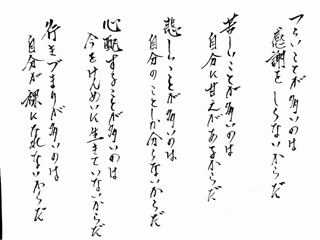 つらいことが多いのは
感謝をしらないからだ
苦しいことが多いのは
自分に甘えがあるからだ
悲しいことが多いのは
自分のことしか分らないからだ
心配することが多いのは
今をけんめいに生きていないからだ
行きづまりが多いのは
自分が裸になれないからだ